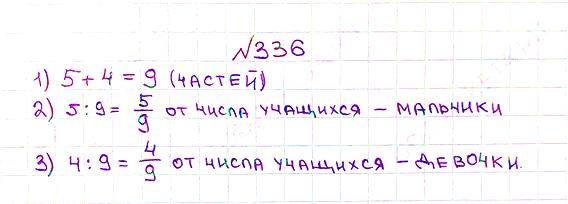 №336
1) 5 + 4 = 9 (ЧАСТЕЙ)
2) 5 : 9 = 5/9 ОТ ЧИСЛА УЧАЩИХСЯ – МАЛЬЧИКИ
3) 4 : 9 = 4/9 ОТ ЧИСЛА УЧАЩИХСЯ – ДЕВОЧКИ.